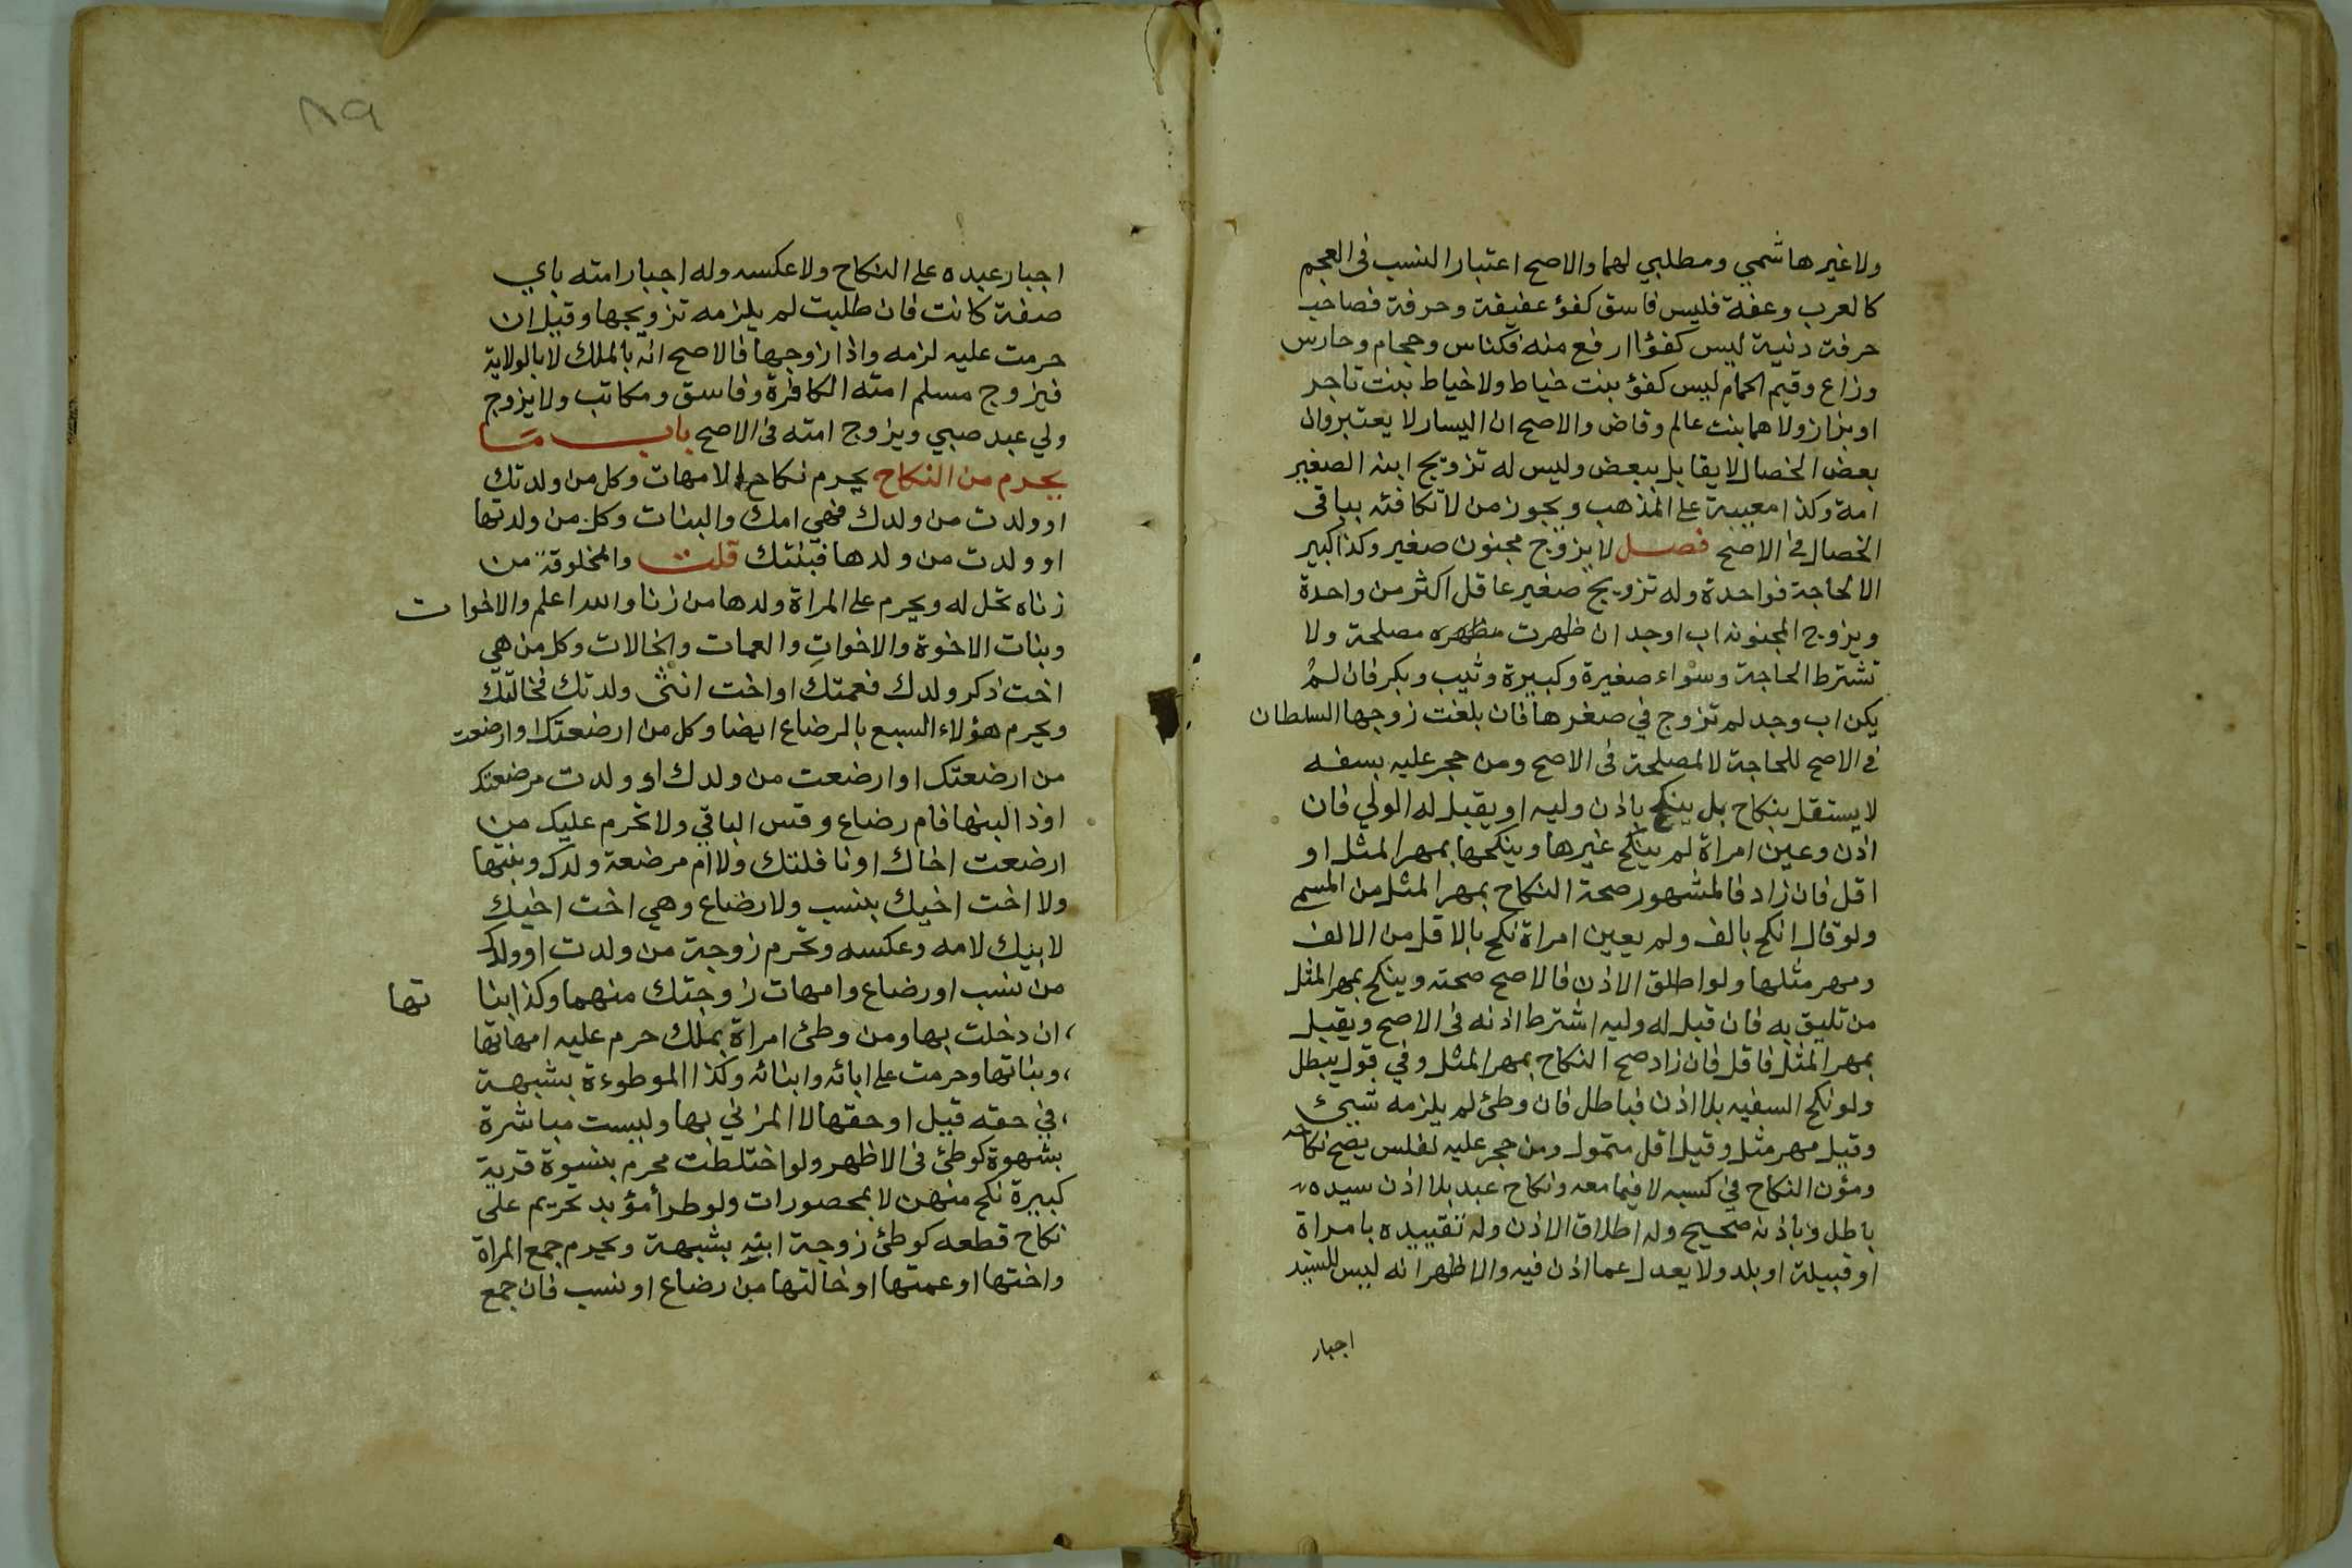 ولا غيرها شمي ومطلبي لهما والاصح اعتبار النسب فى العجم
كالعرب وعفة فليس فاسق كفؤ عفيفة وحرفة فصاحب
حرفة دنية ليس كفؤا ارفع منه فكناس وحجام وحارس
وراع وقيم الحمام ليس كفؤ بنت خياط ولا خياط بنت تاجر
او بزاز ولا هما بنت عالم وقاض والاصح ان اليسار لا يعتبر وان
بعض الخصال لا يقابل ببعض وليس له تزويج ابنه الصغير
امة وكذا معيبة على المذهب ويجوز من لا تكافئه بباقى
الخصال في الاصح فصل لا يزوج مجنون صغير وكذا كبير
الا لحاجة فواحدة وله تزويج صغير عاقل اكثر من واحدة
ويزوج المجنونه اب او جد ان ظهرت مصلحة ولا
تشترط الحاجة وسواء صغيرة وكبيرة وثيب وبكر فان لم
يكن اب وجد لم تزوج في صغرها فان بلغت زوجها السلطان
في الاصح للحاجة لا لمصلحة فى الاصح ومن حجر عليه بسفه
لا يستقل بنكاح بل ينكح باذن وليه او يقبل له الولي فان
اذن وعين امراة لم ينكح غيرها وينكحها بمهر المثل او
اقل فان زاد فالمشهور صحة النكاح بمهر المثل من المسمى
ولو قال انكح بالف ولم يعين امراة نكح بالاقل من الالف
ومهر مثلها ولو اطلق الاذن فالاصح صحته وينكح بمهر المثل
من تليق به فان قبل له وليه اشترط اذنه فى الاصح ويقبل
بمهر المثل فاقل فان زاد صح النكاح بمهر المثل وفي قول يبطل
ولو نكح السفيه بلا اذن فباطل فان وطئ لم يلزمه شيئ
وقيل مهر مثل وقيل اقل متمول ومن حجر عليه لفلس يصح نكاحه
ومؤن النكاح في كسبه لا فيما معه ونكاح عبد بلا اذن سيده
باطل وباذنه صحيح وله اطلاق الاذن وله تقييده بامراة
او قبيلة او بلد ولا يعدل عما اذن فيه والاظهر انه ليس للسيد
اجبار
٨٩
اجبار عبده على النكاح ولا عكسه وله اجبار امته باي
صفة كانت فان طلبت لم يلزمه تزويجها وقيل ان
حرمت عليه لزمه واذا زوجها فالاصح انه بالملك لا بالولاية
فيزوج مسلم امته الكافرة وفاسق ومكاتب ولا يزوج
ولي عبد صبي ويزوج امته فى الاصح باب ما
يحرم من النكاح يحرم نكاح الامهات وكل من ولدتك
او ولدت من ولدك فهي امك والبنات وكل من ولدتها
او ولدت من ولدها فبنتك قلت والمخلوقة من
زناه تحل له ويحرم على المراة ولدها من زنا والله اعلم والاخوات
وبنات الاخوة والاخوات والعمات والخالات وكل من هي
اخت ذكر ولدك فعمتك او اخت انثى ولدتك فخالتك
ويحرم هؤلاء السبع بالرضاع ايضا وكل من ارضعتك او ارضعت
من ارضعتك او ارضعت من ولدك او ولدت مرضعتك
او ذا لبنها فام رضاع وقس الباقي ولا تحرم عليك من
ارضعت اخاك او نافلتك ولا ام مرضعة ولدك وبنتها
ولا اخت اخيك بنسب ولا رضاع وهي اخت اخيك
لابيك لامه وعكسه وتحرم زوجة من ولدت او ولدك
من نسب او رضاع وامهات زوجتك منهما وكذا بنا تها
ان دخلت بها ومن وطئ امراة بملك حرم عليه امهاتها
وبناتها وحرمت على ابائه وابنائه وكذا الموطوءة بشبهة
في حقه قيل او حقها لا المزني بها وليست مباشرة
بشهوة كوطئ فى الاظهر ولو اختلطت محرم بنسوة قرية
كبيرة نكح منهن لا بمحصورات ولو طرأ مؤبد تحريم على
نكاح قطعه كوطئ زوجة ابنه بشبهة ويحرم جمع المراة
واختها او عمتها او خالتها من رضاع او نسب فان جمع